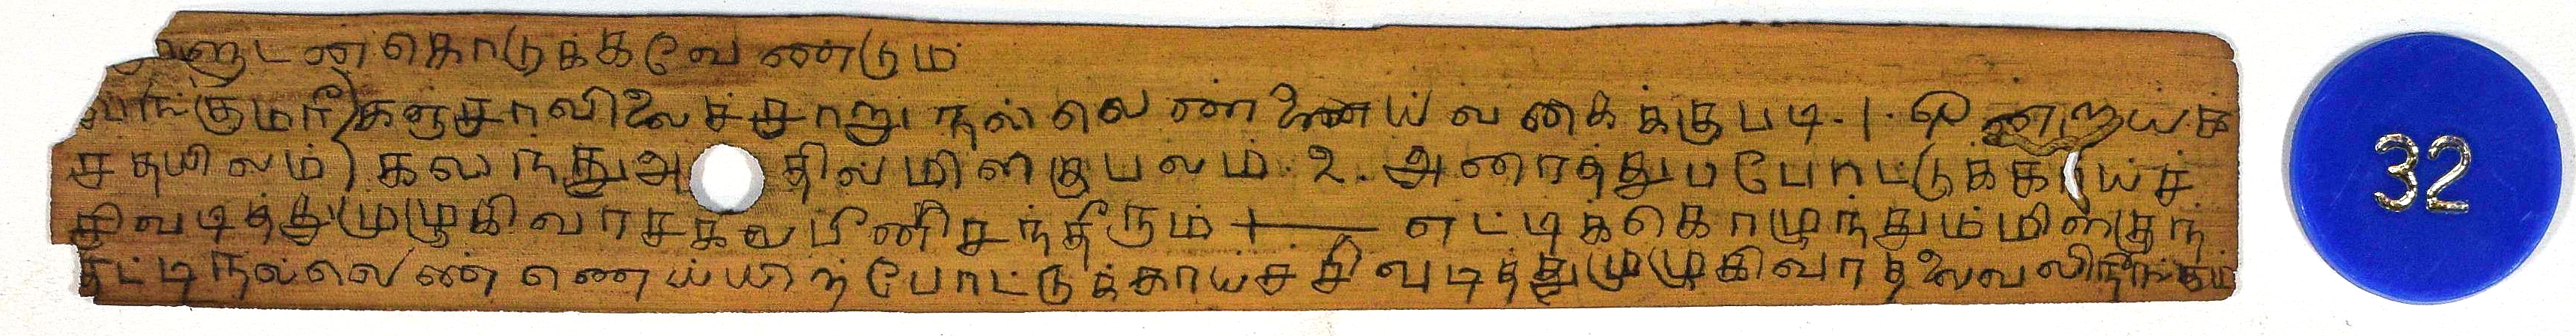 ளுடன கொடுக்க வேணடும
குமரி) கஞசாவிலைச்சாறு நல்லெண்ணைய் வகைக்கு படி . 1 . ஒன்றாய்க்
ச தயிலம்) கலந்து அதில் மிளகு பலம் . 2 . அரைத்துப போட்டுக்காய்ச்
சிவடித்துமுழுகிவாசகல பீனிசந்தீரும் + எட்டிக்கொழுந்தும் மிளகுந்
தட்டிநல்லெண்ணெய்யிற்போட்டுக்காய்சசிவடித்துமுழுகிவாதலைவலிநீங்கும்
32